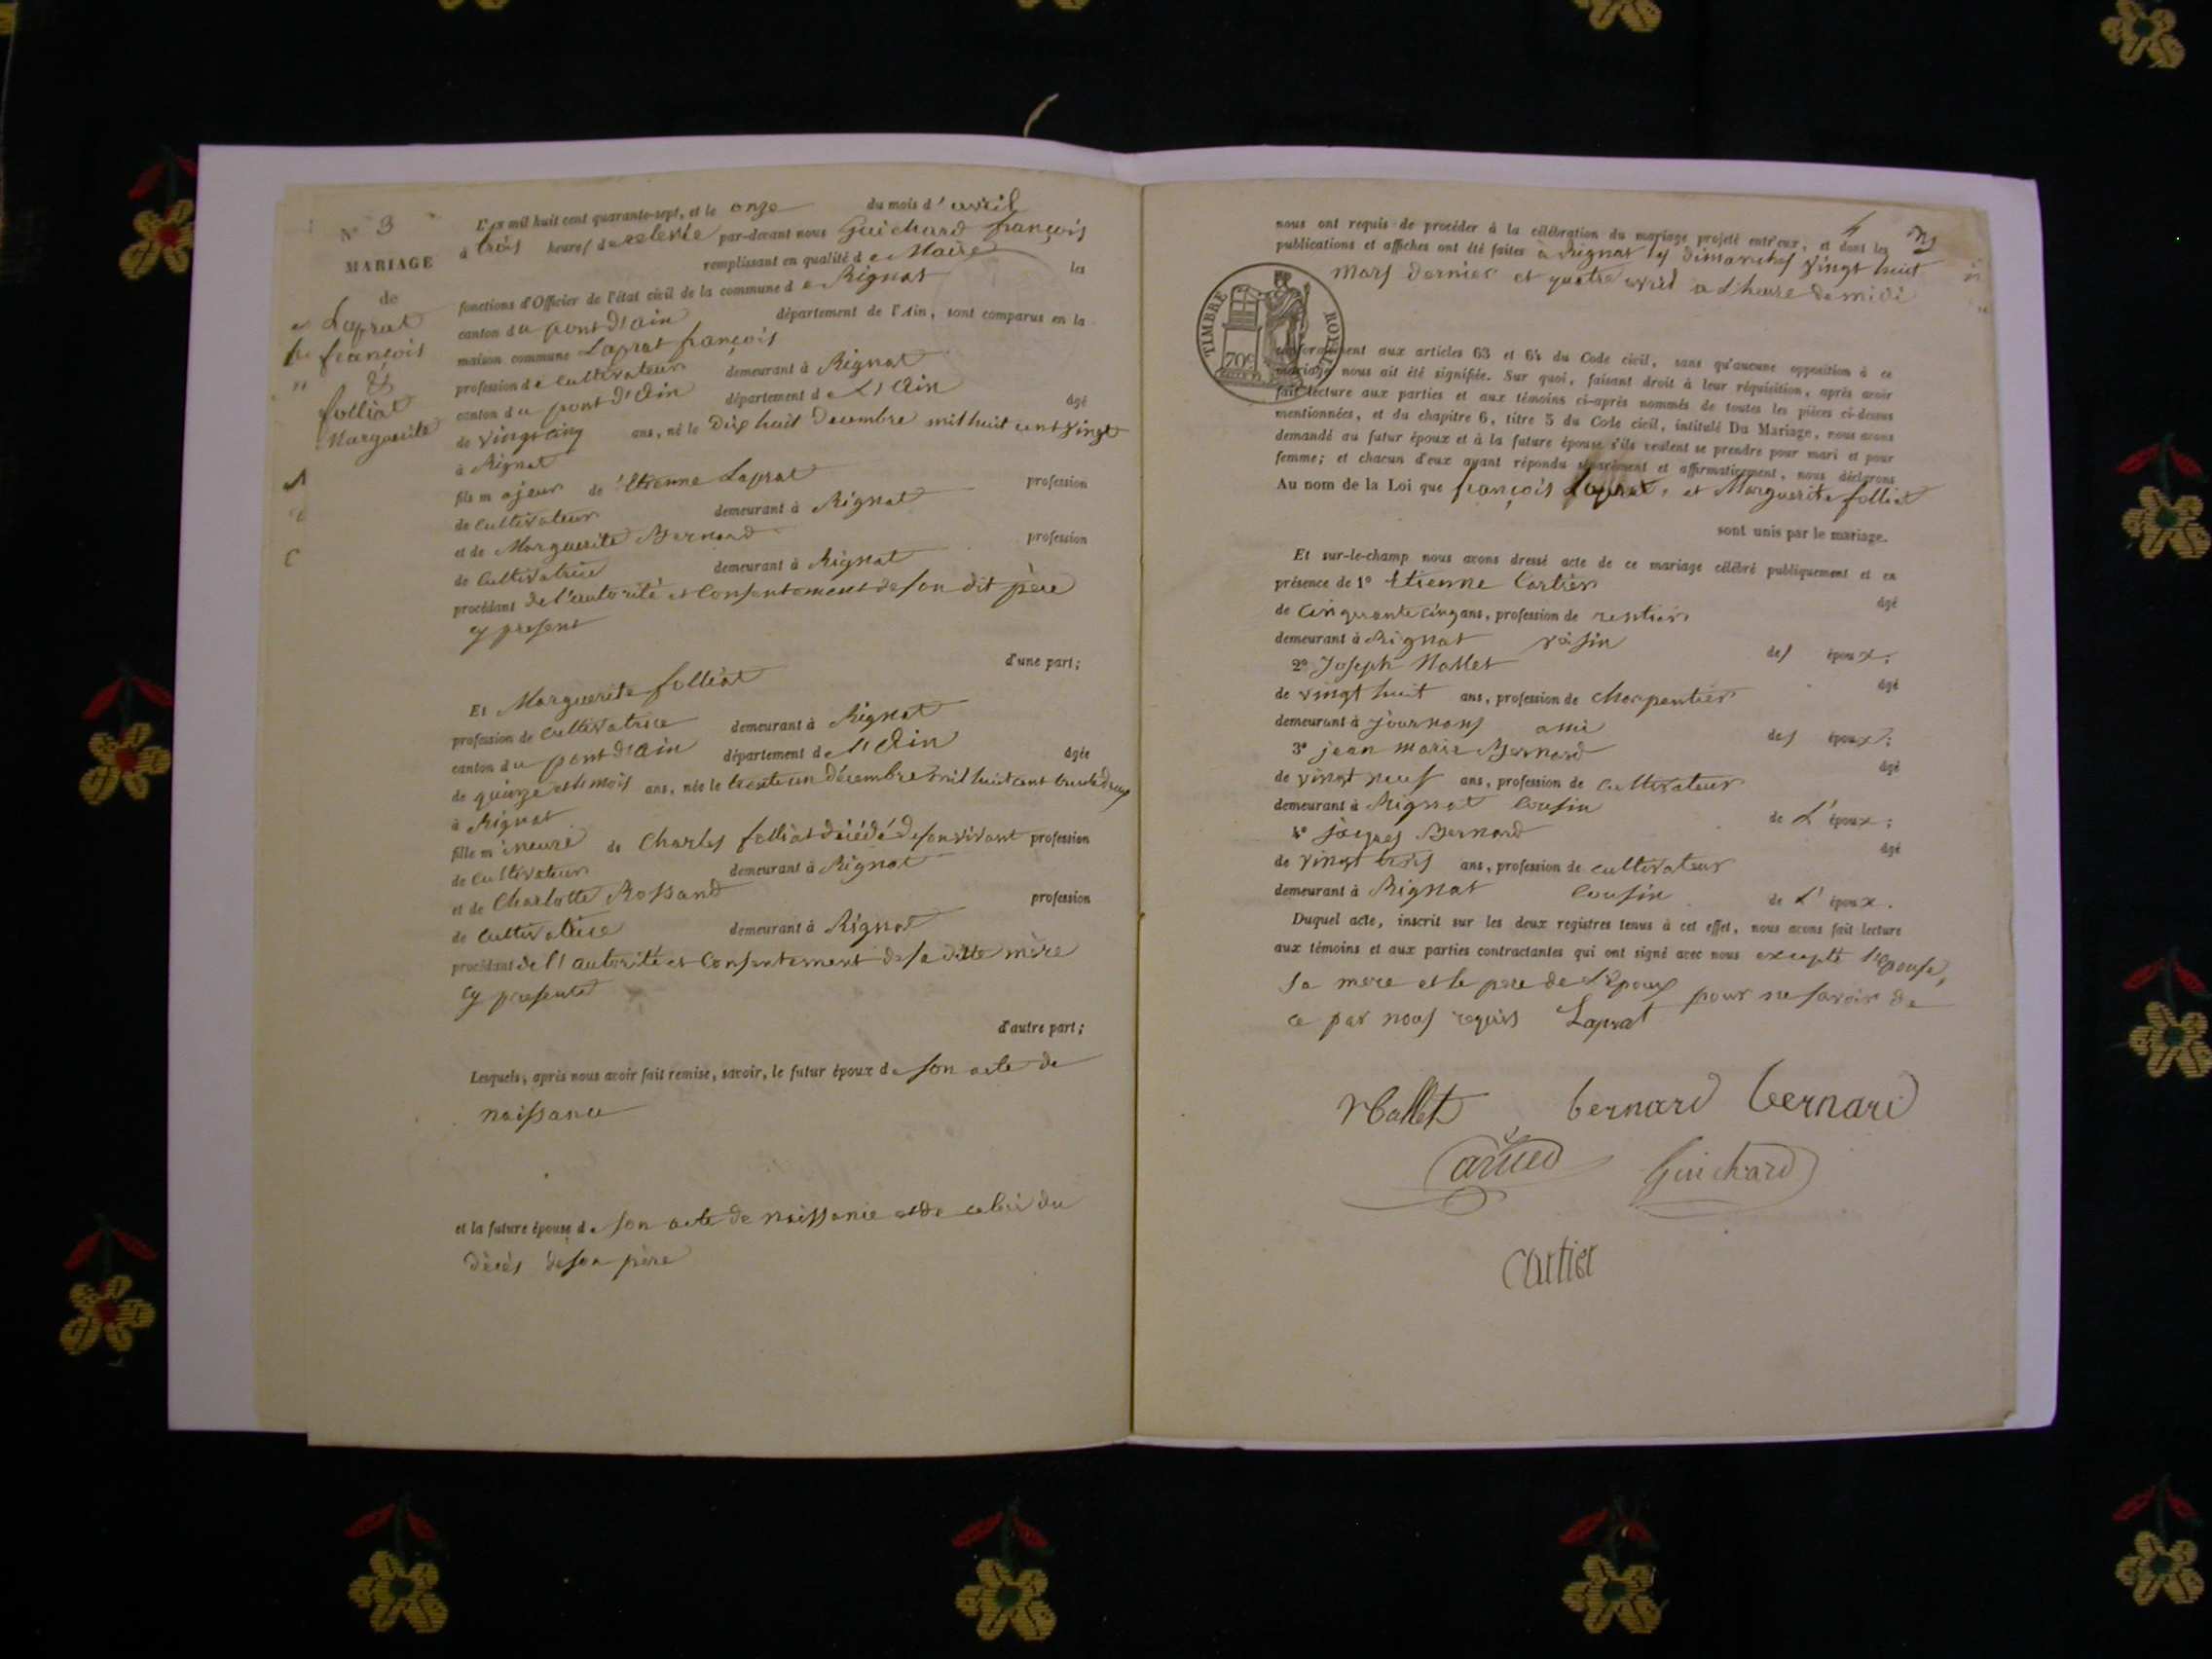 N° 3
MARIAGE
de
Laprat
françois
&
folliat
Marguerite
L'an mil huit cent quarante-sept, et le onze du mois d'avril
à trois heures de relevée par-devant nous Guichard françois
remplissant en qualité de Maire les
fonctions d'Officier de l'état civil de la commune de Rignat
canton du pont d'ain département de l'Ain, sont comparus en la
maison commune Laprat françois
profession de Cultivateur demeurant à Rignat
canton du pont d'Ain département de L'Ain âgé
de vingt cinq ans, né le Dix huit Decembre mil huit cent vingt
à Rignat
fils majeur de Etienne Laprat profession
de Cultivateur demeurant à Rignat
et de Marguerite Bernard profession
de Cultivatrice demeurant à Rignat
procédant de l'autorité et Consentement de son dit père
cy present
d'une part;
Et Marguerite folliat
profession de Cultivatrice demeurant à Rignat
canton du pont d'Ain département de l'Ain âgée
de quinze et mois ans, née le trente un décembre mil huit cent trente deux
à Rignat
fille mineure de Charles folliat décédé de son vivant profession
de Cultivateur demeurant à Rignat
et de Charlotte Rossand profession
de Cultivatrice demeurant à Rignat
procédant de l'autorité et Consentement de sa ditte mère
cy presente
d'autre part;
Lesquels, après nous avoir fait remise, savoir, le futur époux de son acte de
naissance
et la future épouse de son acte de naissance et de celui du
décès de son père
nous ont requis de procéder à la célébration du mariage projeté entr'eux, et dont les
publications et affiches ont été faites à Rignat les dimanches vingt huit
mars dernier et quatre avril a l'heure de midi
TIMBRE ROYAL
70c
conformément aux articles 63 et 64 du Code civil, sans qu'aucune opposition à ce
mariage nous ait été signifiée. Sur quoi, faisant droit à leur réquisition, après avoir
fait lecture aux parties et aux témoins ci-après nommés de toutes les pièces ci-dessus
mentionnées, et du chapitre 6, titre 5 du Code civil, intitulé Du Mariage, nous avons
demandé au futur époux et à la future épouse s'ils veulent se prendre pour mari et pour
femme; et chacun d'eux ayant répondu séparément et affirmativement, nous déclarons
Au nom de la Loi que françois Laprat, et Marguerite folliat
sont unis par le mariage.
Et sur-le-champ nous avons dressé acte de ce mariage célébré publiquement et en
présence de 1° Etienne Cartier âgé
de Cinquante cinq ans, profession de rentier
demeurant à Rignat voisin des époux;
2° Joseph Mallet âgé
de vingt huit ans, profession de Charpentier
demeurant à journans ami des époux;
3° jean marie Bernard âgé
de vingt neuf ans, profession de Cultivateur
demeurant à Rignat Cousin de L'époux;
4° jacques Bernard âgé
de vingt trois ans, profession de cultivateur
demeurant à Rignat Cousin de L'époux.
Duquel acte, inscrit sur les deux registres tenus à cet effet, nous avons fait lecture
aux témoins et aux parties contractantes qui ont signé avec nous excepté l'epouse,
sa mere et le pere de l'epoux pour ne savoir de
ce par nous requis Laprat
Mallet bernard bernard
Guichard
Cartier